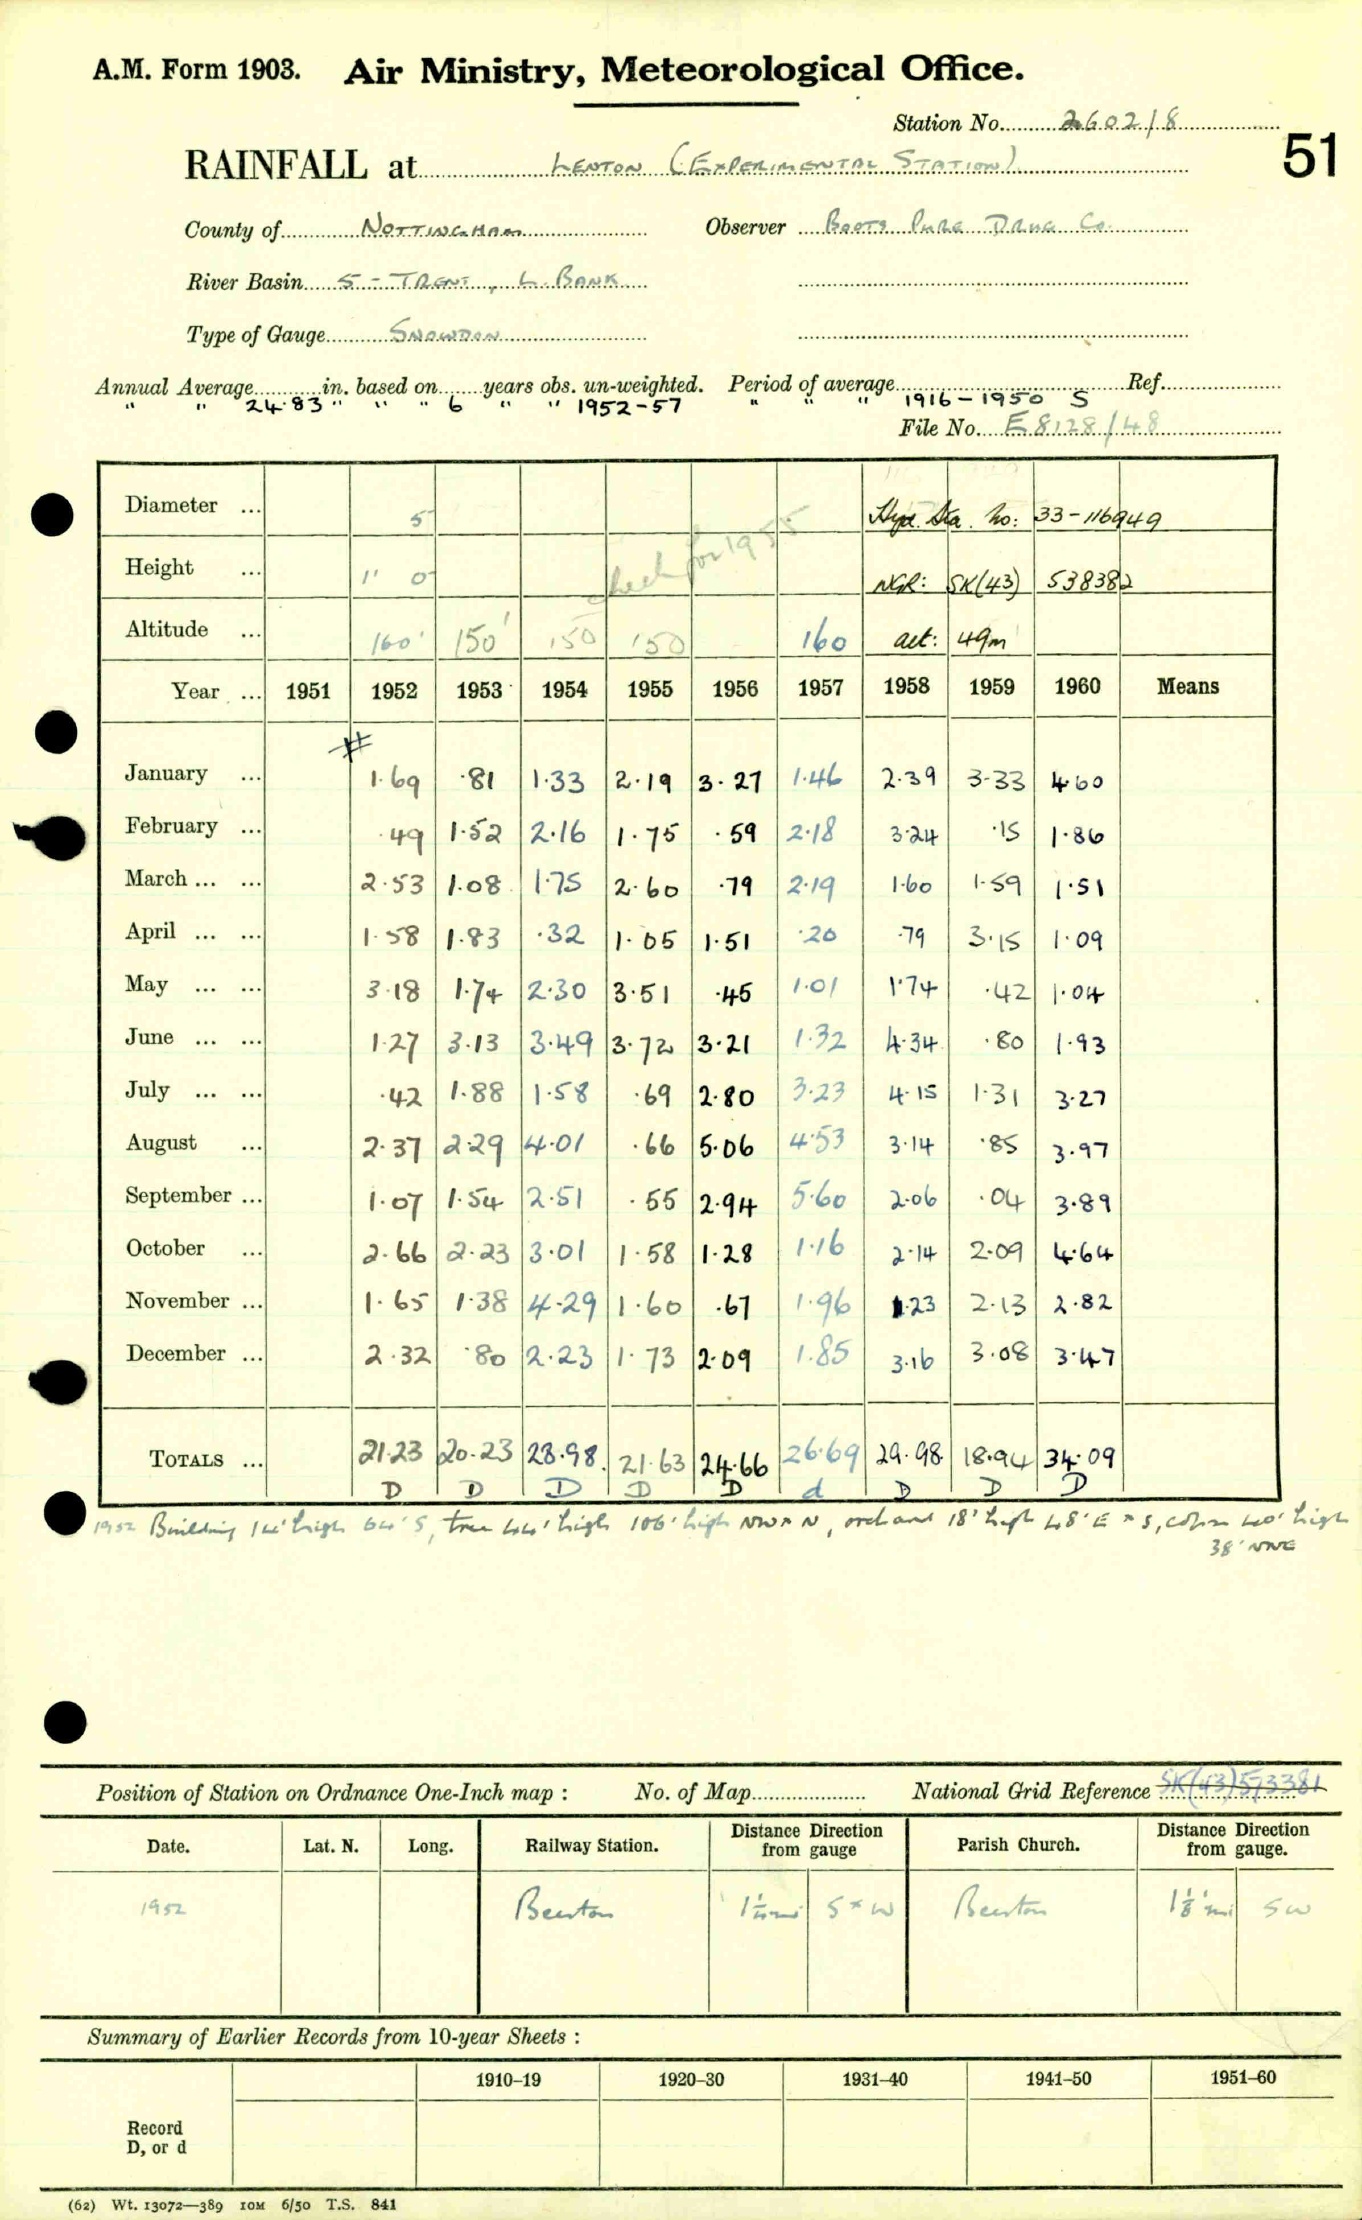 A.M. Form 1903. Air Ministry, Meteorological Office.
Station No. 2602/8
51
RAINFALL at LENTON (EXPERIMENTAL STATION).
County of NOTTINGHAM Observer BOOTS PURE DRUG Co.
River Basin 5 - TRENT, L. BANK
Type of Gauge SNOWDON
Annual Average in. based on years obs. un-weighted. Period of average Ref.
" " 24.83 " " " 6 " " 1952-57 " " " 1916-1950 S
File No. E8128/48
Diameter ... 5 Hyd. Sta. No: 33-116949
Height ... 1' 0 check for 1955 NGR: SK(43) 538382
Altitude ... 160' 150' 150 150 160 alt: 49m
Year ... 1951 1952 1953 1954 1955 1956 1957 1958 1959 1960 Means
January ... 1.69 .81 1.33 2.19 3.27 1.46 2.39 3.33 4.60
February ... .49 1.52 2.16 1.75 .59 2.18 3.24 .15 1.86
March ... ... 2.53 1.08 1.75 2.60 .79 2.19 1.60 1.59 1.51
April ... ... 1.58 1.83 .32 1.05 1.51 .20 .79 3.15 1.09
May ... ... 3.18 1.74 2.30 3.51 .45 1.01 1.74 .42 1.04
June ... ... 1.27 3.13 3.49 3.72 3.21 1.32 4.34 .80 1.93
July ... ... .42 1.88 1.58 .69 2.80 3.23 4.15 1.31 3.27
August ... 2.37 2.29 4.01 .66 5.06 4.53 3.14 .85 3.97
September ... 1.07 1.54 2.51 .55 2.94 5.60 2.06 .04 3.89
October ... 2.66 2.23 3.01 1.58 1.28 1.16 2.14 2.09 4.64
November ... 1.65 1.38 4.29 1.60 .67 1.96 1.23 2.13 2.82
December ... 2.32 .80 2.23 1.73 2.09 1.85 3.16 3.08 3.47
TOTALS ... 21.23 20.23 28.98 21.63 24.66 26.69 29.98 18.94 34.09
D D D D D d D D D
1952 Building 14' high 64' S, tree 44' high 106' high NW x N, orchard 18' high 48' E x S, 40' high
38' NNE
Position of Station on Ordnance One-Inch map : No. of Map National Grid Reference SK(43)573381
Date. Lat. N. Long. Railway Station. Distance Direction from gauge Parish Church. Distance Direction from gauge.
1952 Beeston mi S x W Beeston 1 1/8 mi SW
Summary of Earlier Records from 10-year Sheets :
1910–19 1920–30 1931–40 1941–50 1951–60
Record
D, or d
(62) Wt. 13072—389 10M 6/50 T.S. 841